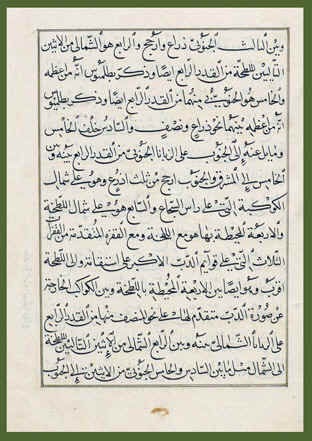 وبين الثالث الجنوبي ذراع وأرجح والرابع هو الشمالي من الاثنين
التاليين للطخة من القدر الرابع ايضا وذكر بطلميوس انه من اعظمه
والخامس هو الجنوبي منهما من القدر الرابع ايضا وذكر بطلميوس
انه من اعظمه بينهما نحو ذراع ونصف والسادس خلف الخامس
وميل عنه الى الجنوب على الزبانا الجنوبي من القدر الرابع بينه وبين
الخامس الى المشرق والجنوب ارجح من ثلث اذرع وهو على شمال
الكوكبة التي على راس الشجاع والسابع هو على شمال اللطخة
والاربعة المحيطة بها هو مع اللطخة ومع الفقرة المتقدمة من الفقرات
الثلاث التي على قوايم الدب الاكبر على استقامة والى
اقرب وهو ايضا بين الاربعة المحيطة باللطخة وبين الكواكب الخارجة
عن صورة الدب متقدم لذلك على نحو المنصف منها من القدر الرابع
على الزبانا الشمالي بينه وبين الرابع الشمالي من الاثنين التاليين للطخة
الى الشمال مثل ما بين السادس والخامس الجنوبي من الاثنين الى الجنوب